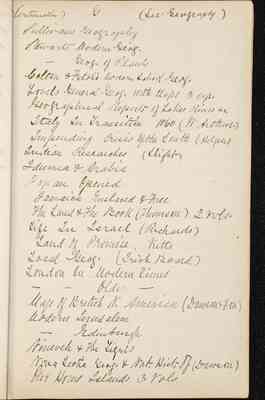 (Continuation) G (See Geography)
Sullivans Geography
Stewarts Modern Geog.
— Geog. of Plants
Colton & Fitch's Modern School Geog.
Lovells General Geog. with Maps
Geographical Report of Lakes
Italy In Transition 1860 (W. Arthur)
Impending Crisis of the South (Helper)
Indian Researches (Slight)
Idumea & Arabia
Japan Opened
Jamaica Enslaved & Free
The Land & The Book (Thomson) 2 vols.
Life In Israel (Richards)
Land of Promise, Kitto
Local Geog. (Irish Board)
London In Modern Times
— — Olden —
Map of British N. America (Dawson)
Modern Jerusalem
— Edinburgh
Nineveh & The Tigris
Nova Scotia Geog. & Nat. Hist. Of (Dawson)
Islands 3 Vols